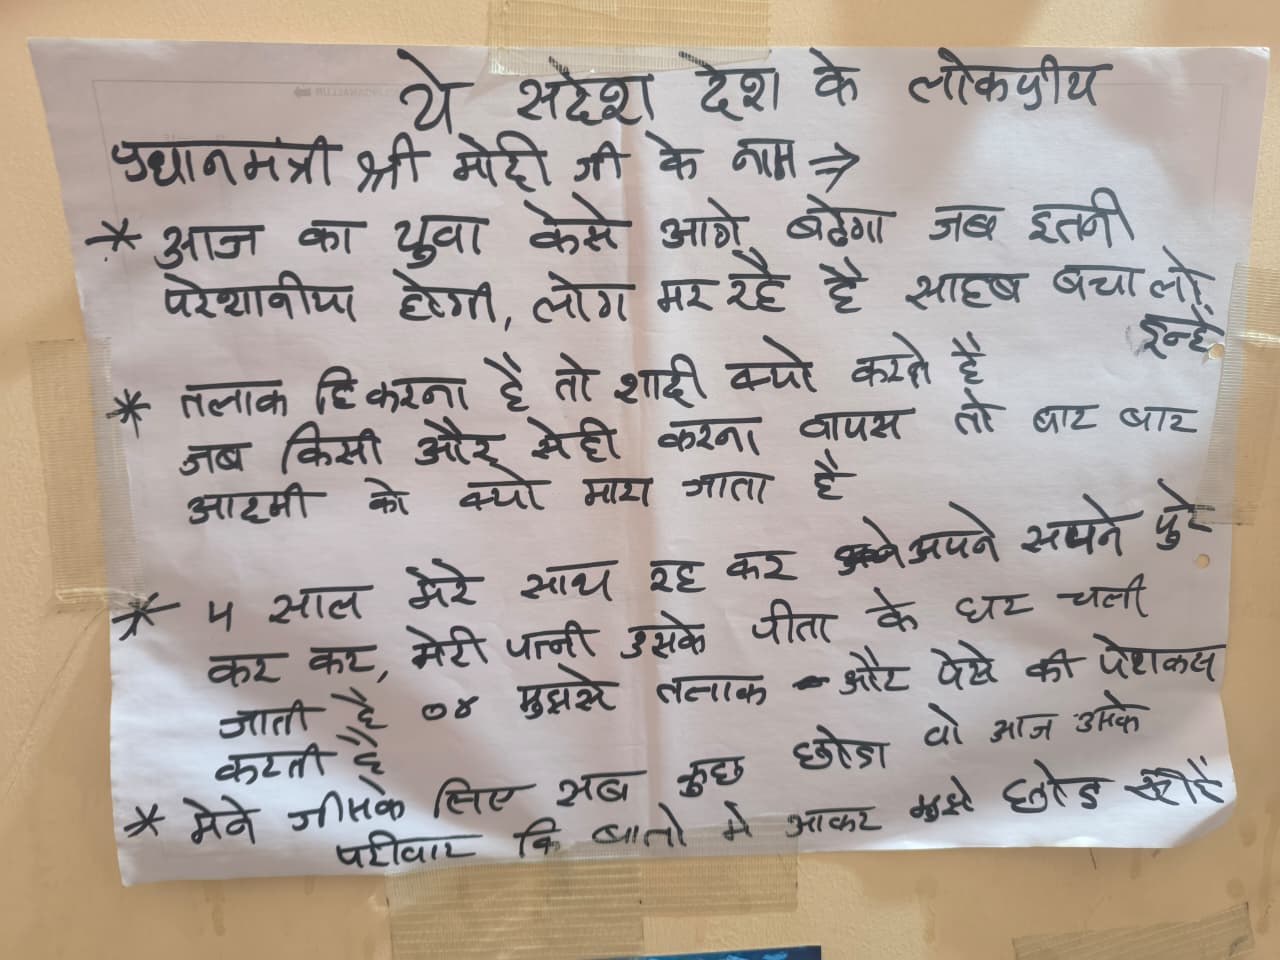 ये सदेश देश के लोकप्रीय
प्रधानमंत्री श्री मोदी जी के नाम ⇒
* आज का युवा केसे आगे बढेगा जब इतनी
परेशानीया होगी, लोग मर रहै है साहब बचा लो
इन्हे
* तलाक हि करना है तो शादी क्यो करते है
जब किसी और सेही करना वापस तो बार बार
आदमी को क्यो मारा जाता है
* 4 साल मेरे साथ रह कर अपने सपने पुरे
कर कर, मेरी पत्नी उसके पीता के घर चली
जाती है or मुझसे तलाक और पेसे की पेशकस
करती है
* मेने जीसके लिए सब कुछ छोडा वो आज उसके
परीवार कि बातो मे आकर मुझे छोड रही है